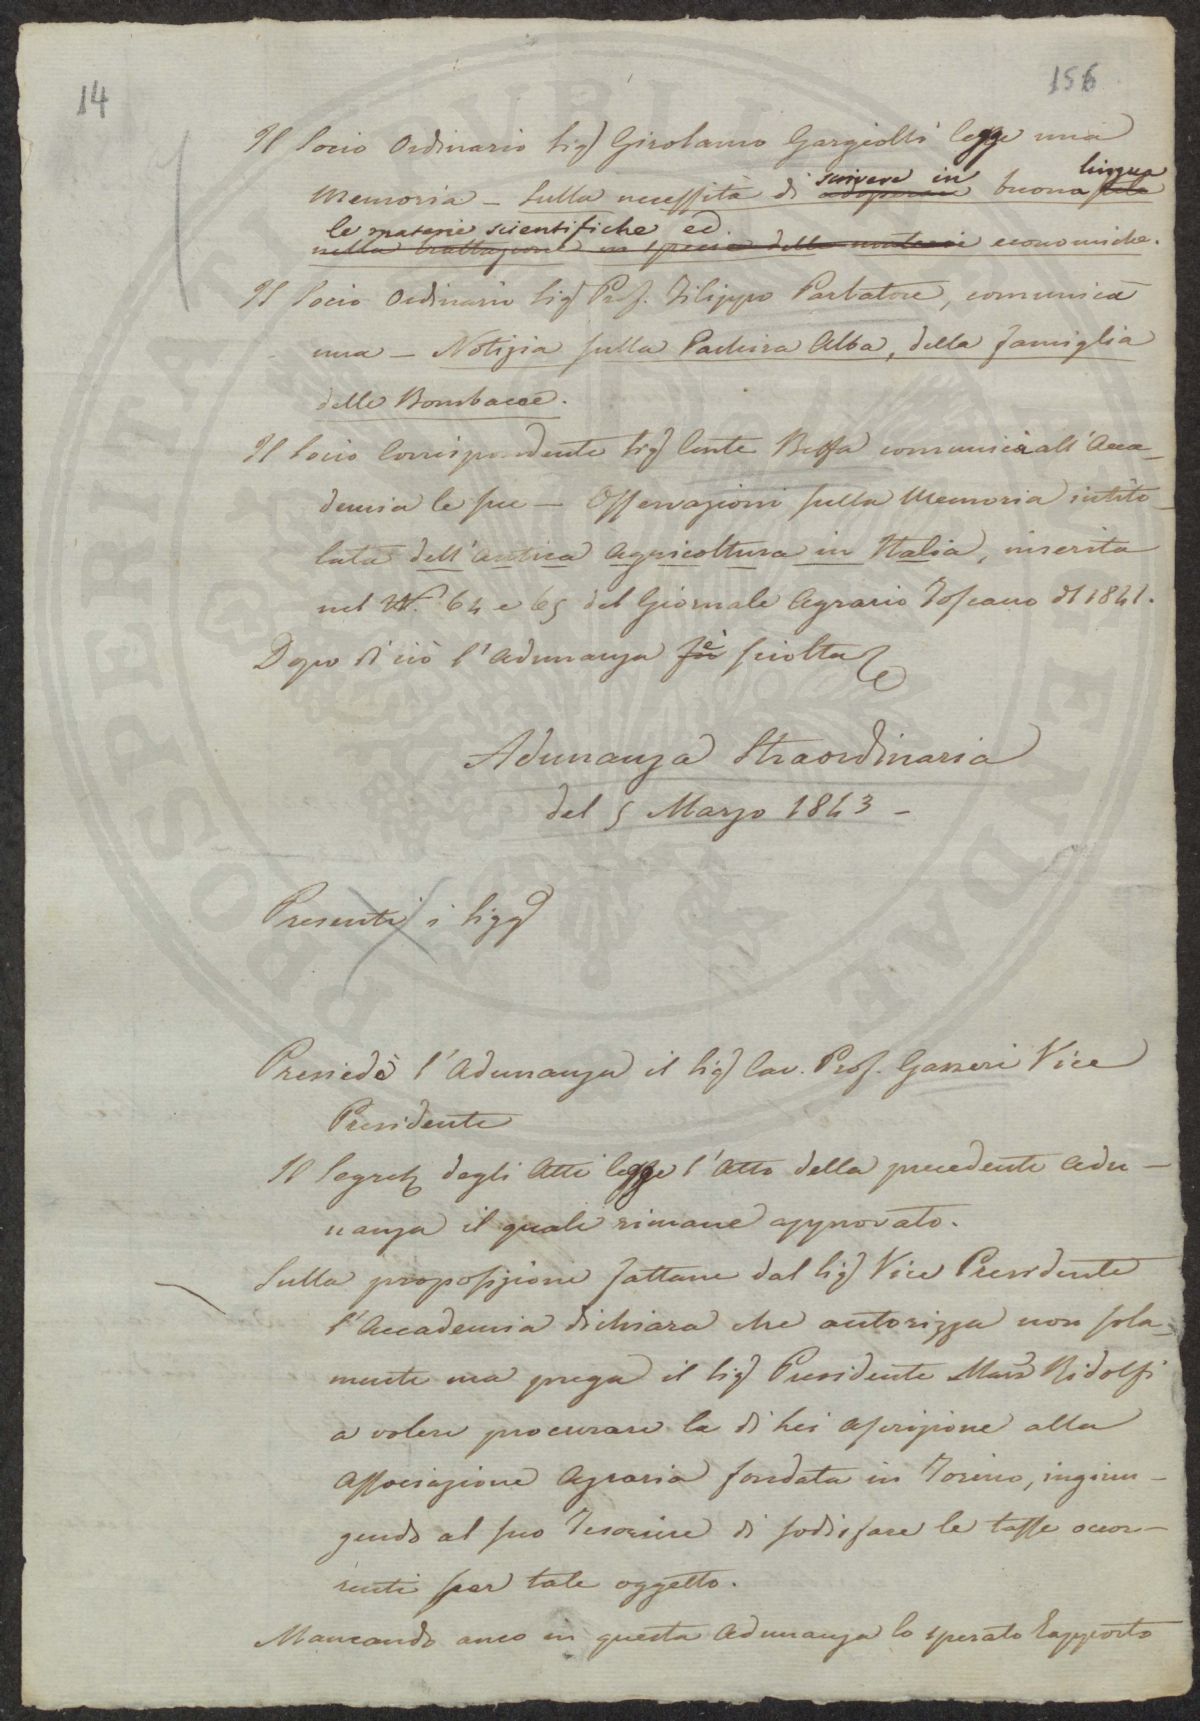 14
156
Il Socio Ordinario Sig.r Girolamo Gargiolli legge una
Memoria – sulla necessità di adoperare scrivere in buona lingua
nella trattazione in specie delle materie le materie scientifiche ed economiche.
Il Socio Ordinario Sig.r Prof. Filippo Parlatore, comunica
una – Notizia sulla Pachira Alba, della famiglia
delle Bombacee.
Il Socio Corrispondente Sig.r Conte Beffa comunica all'Acca-
demia le sue – Osservazioni sulla Memoria intito-
lata dell'antica agricoltura in Italia, inserita
nel N. 64 e 65 del Giornale Agrario Toscano del 1841.
Dopo di ciò l'Adunanza fu è sciolta
Adunanza Straordinaria
del 5 Marzo 1843 –
Presenti i Sigg.ri
Presiedè l'Adunanza il Sig.r Cav. Prof. Gazzeri Vice
Presidente
Il Segret.o degli Atti legge l'Atto della precedente adu-
nanza il quale rimane approvato.
Sulla proposizione fattane dal Sig.r Vice Presidente
l'Accademia dichiara che autorizza non sola-
mente ma prega il Sig.r Presidente March. Ridolfi
a volere procurare la di Lei ascrizione alla
Associazione Agraria fondata in Torino, ingiun-
gendo al suo Tesoriere di sodisfare le tasse occor-
renti per tale oggetto.
Mancando anco in questa adunanza lo sperato Rapporto